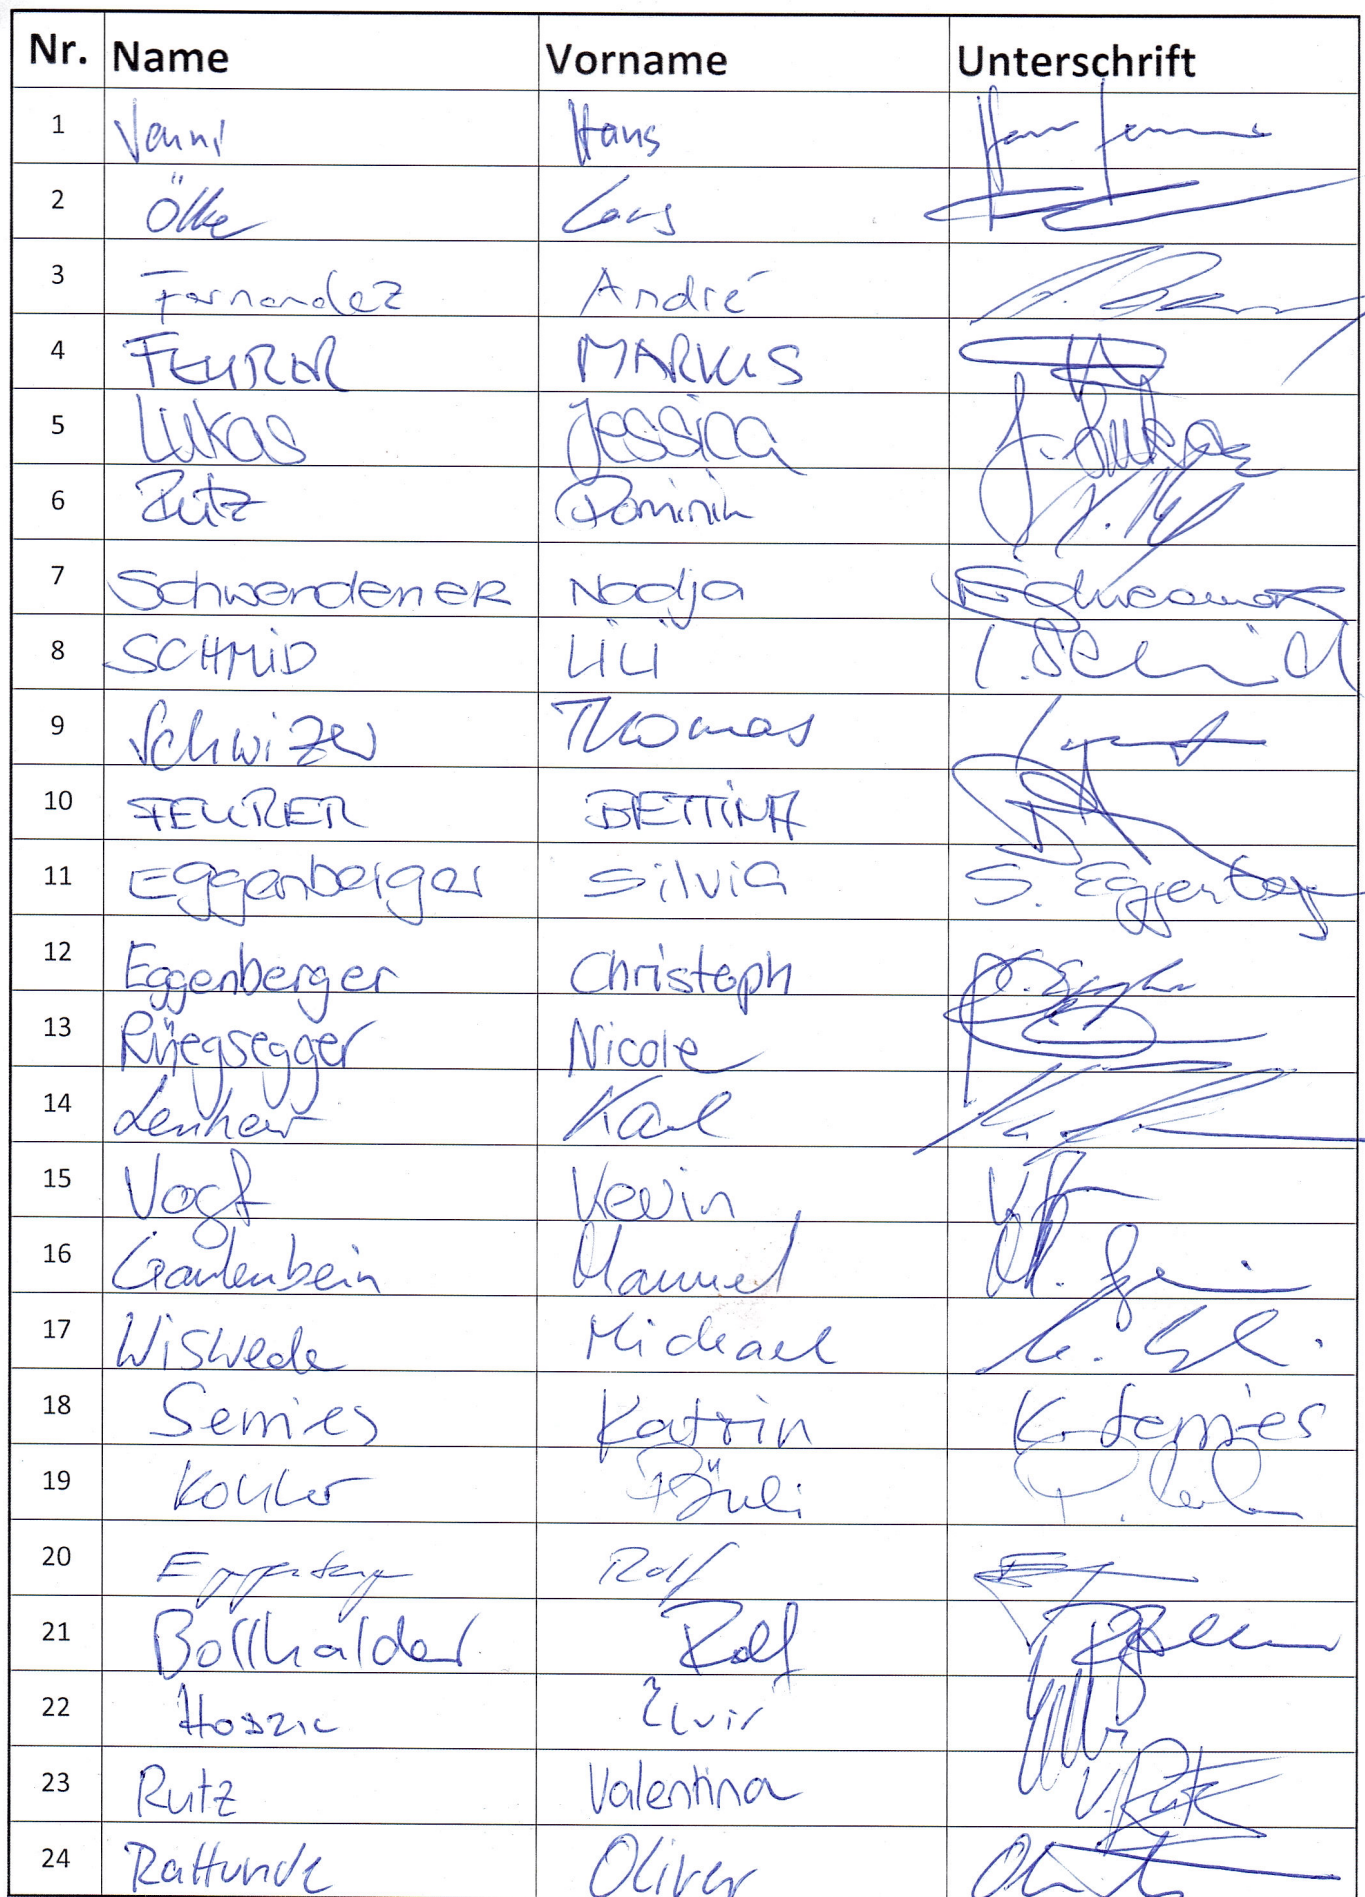 Nr. Name Vorname Unterschrift
1 Hans
2 Ölke Lars
3 Fernandez André
4 FEURER MARKUS
5 Lukas Jessica J. Lukas
6 Rutz Dominik
7 Schwendener Nadja
8 SCHMID LiLi L. Schmid
9 Schwizer Thomas
10 FEURER BETTINA
11 Eggenberger Silvia S. Eggenberger
12 Eggenberger Christoph
13 Rüegsegger Nicole
14 Lenherr Karl
15 Vogt Kevin
16 Gantenbein Manuel
17 Wiswede Michael
18 Semies Katrin K. Semies
19 Kohler
20 Eggenberger Rolf
21 Bollhalder Rolf
22 Elvir
23 Rutz Valentina V. Rutz
24 Rattunde Oliver